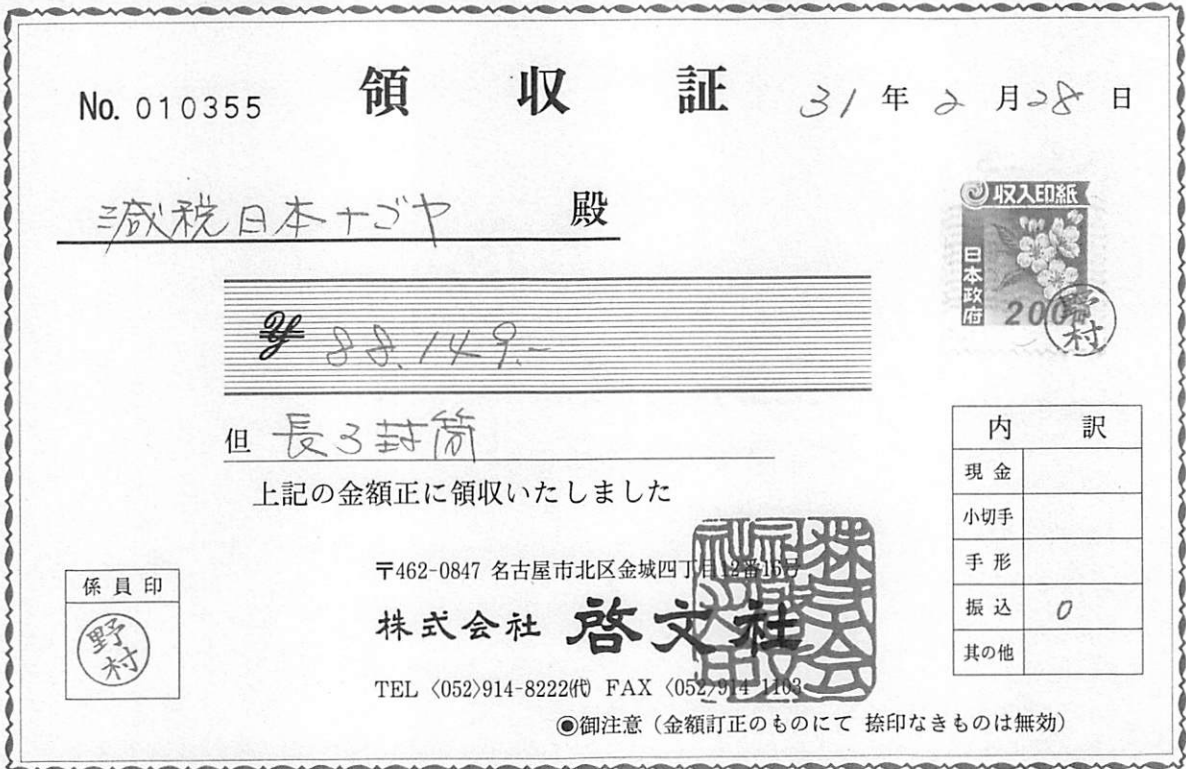 No. 010355 領収証 31年2月28日
減税日本ナゴヤ 殿
収入印紙
日本政府
200
野村
¥ 88,149.-
但 長3封筒
上記の金額正に領収いたしました
内訳
現金
小切手
手形
振込 0
其の他
係員印
野村
〒462-0847 名古屋市北区金城四丁目12番16号
株式会社 啓文社
TEL〈052〉914-8222㈹ FAX〈052〉914-1103
◉御注意(金額訂正のものにて 捺印なきものは無効)